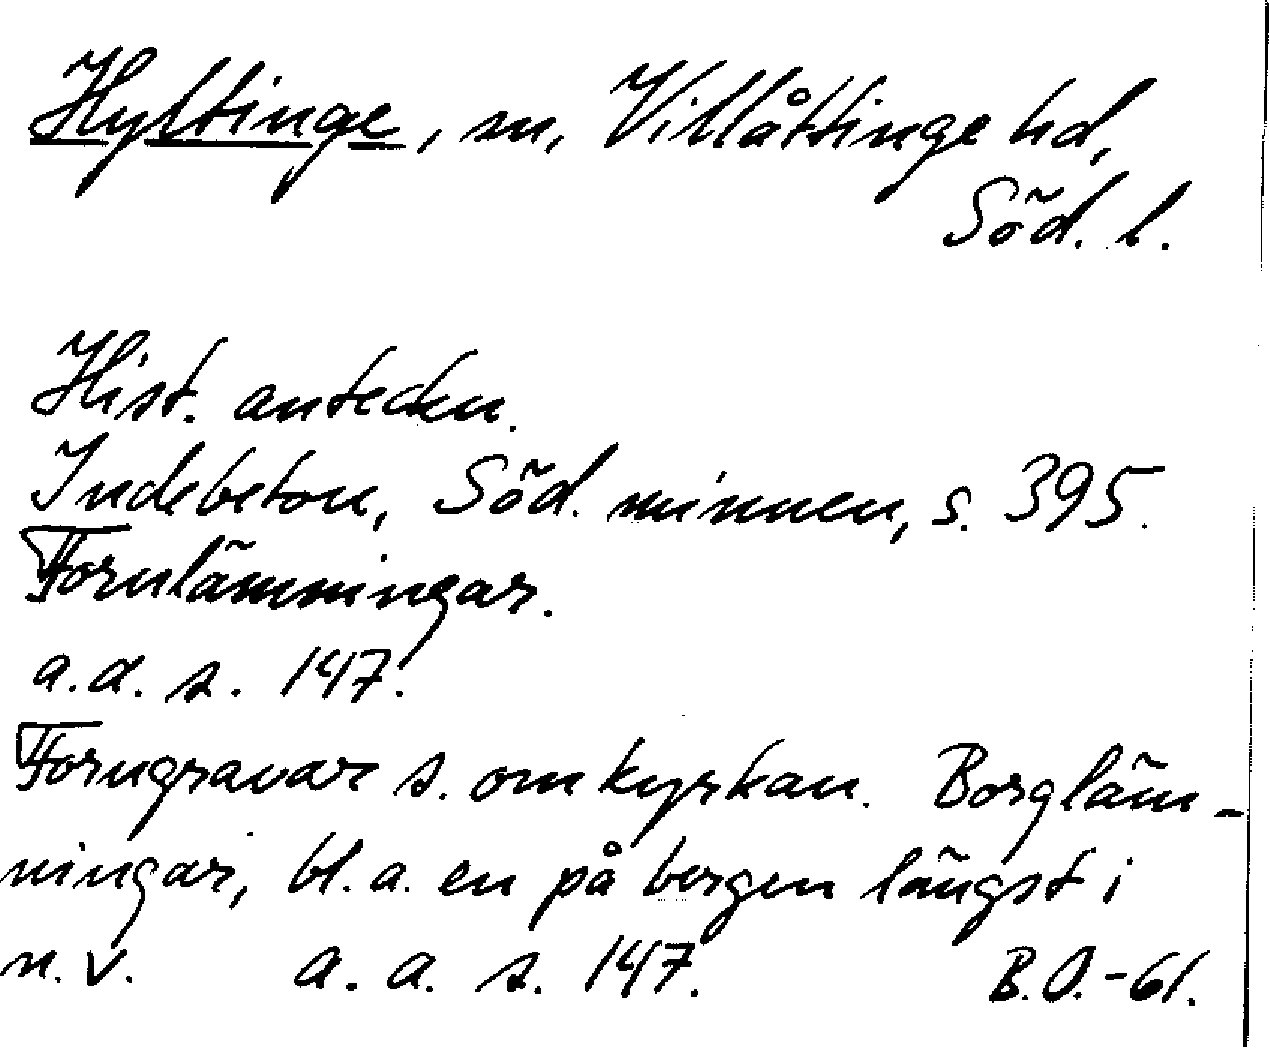 Hyltinge, sn, Villåttinge hd,
Söd. l.
Hist. anteckn.
Indebetou, Söd. minnen, s. 395.
Fornlämningar.
a.a. s. 147.
Forngravar s. om kyrkan. Borgläm-
ningar, bl.a. en på bergen längst i
n.v. a. a. s. 147. B.O.-61.